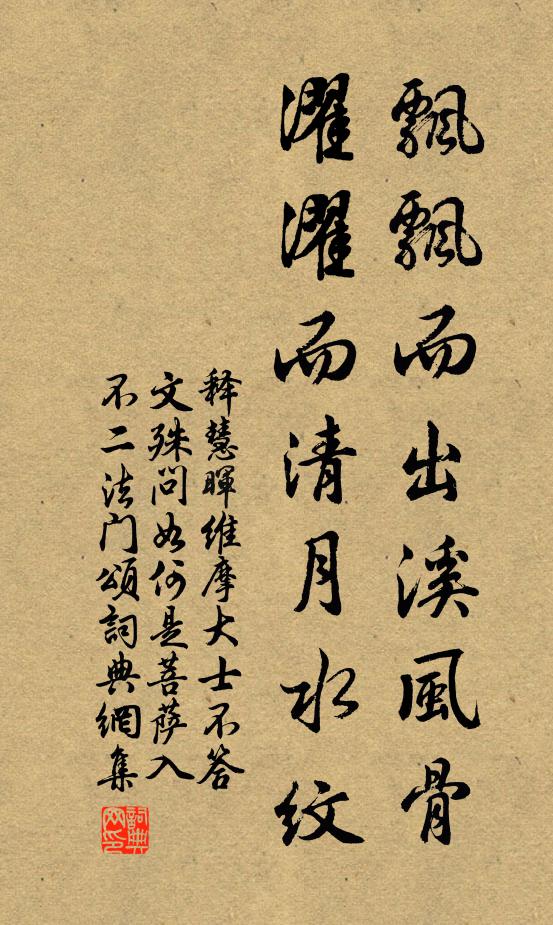 飄飄而出溪風骨
濯濯而清月水紋
释慧暉維摩大士不答
文殊問如何是菩萨入
不二法门頌詞典網集
詞典網印